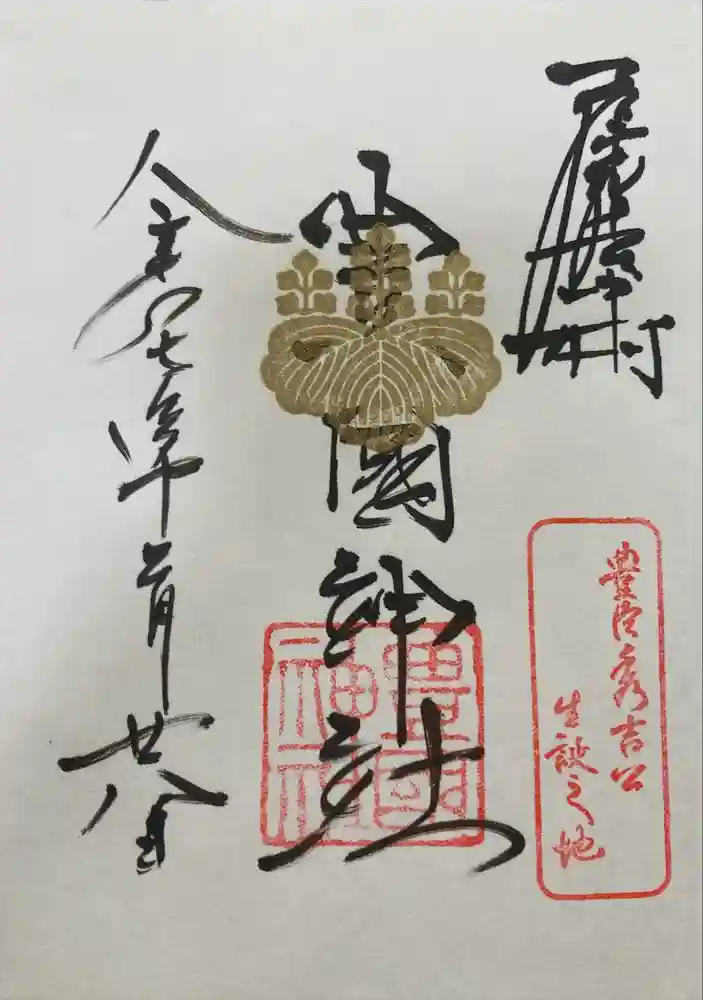 中村
豊國神社
令和七年 月廿八日
豊臣秀吉公
生誕之地
豊國